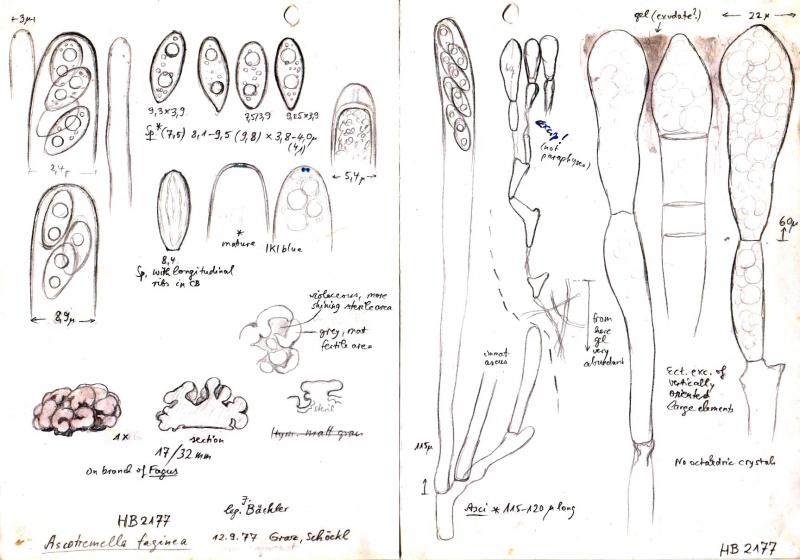 3µ
9,3×3,9
7,5/3,9
9,05×3,9
Sp.* (7,5) 8,1–9,5 (9,8) × 3,8–4,0µ
(4,1)
2,4µ
5,4µ
8,9µ
8,4
Sp. with longitudinal
ribs in CB
*
mature
IKI blue
violaceous, more
shining sterile area
grey, mat
fertile area
1×
section
17/32 mm
steril
Hym. matt grau
on branch of Fagus
HB 2177
Ascotremella faginea
J.
leg. Bächler
12.9.77 Graz, Schöckl
gel (exudate?)
22µ
exc!
(not
paraphyses)
60µ
from
here
gel
very
abundant
immat
ascus
115µ
Asci * 115–120 µ long
Ect. exc. of
vertically
oriented
large elements
No octahedric crystals
HB 2177